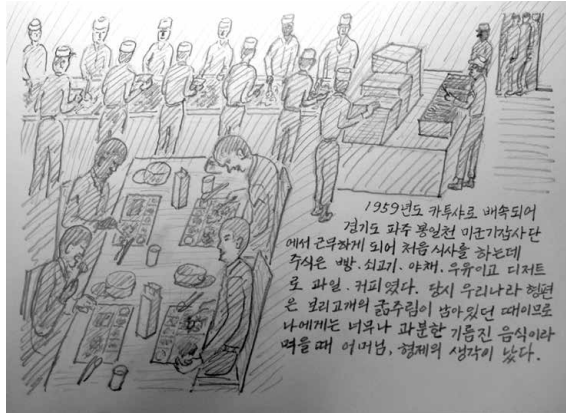 1959년도 카투샤로 배속되어
경기도 파주 봉일천 미군기갑사단
에서 근무하게 되어 처음 식사를 하는데
주식은 빵. 쇠고기. 야채. 우유이고 디저트
로 과일. 커피였다. 당시 우리나라 형편
은 보리고개의 굶주림이 남아있던 때이므로
나에게는 너무나 과분한 기름진 음식이라
먹을때 어머님, 형제의 생각이 났다.